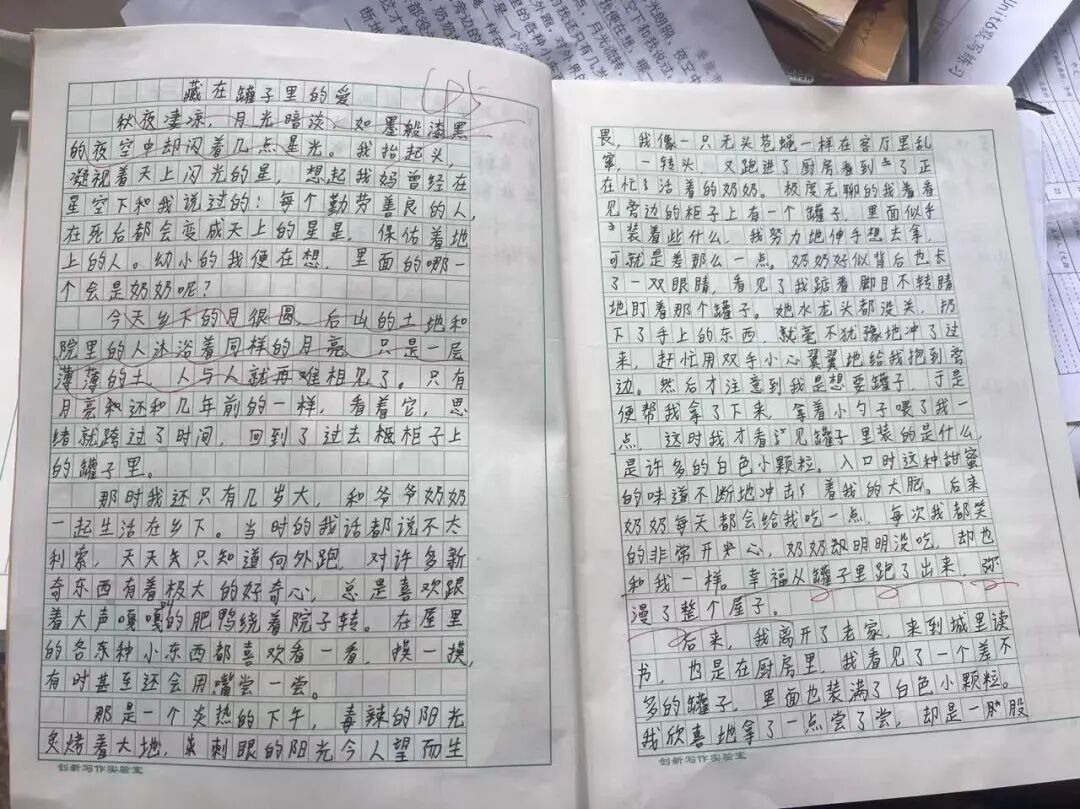 藏在罐子里的爱
秋夜凄凉，月光暗淡，如墨般漆黑
的夜空中却闪着几点星光。我抬起头，
凝视着天上闪光的星，想起我妈曾经在
星空下和我说过的：每个勤劳善良的人，
在死后都会变成天上的星星，保佑着地
上的人。幼小的我便在想，里面的哪一
个会是奶奶呢？
今天乡下的月很圆，后山的土地和
院里的人沐浴着同样的月亮，只是一层
薄薄的土，人与人就再难相见了。只有
月亮和还和几年前的一样，看着它，思
绪就跨过了时间，回到了过去柜柜子上
的罐子里。
那时我还只有几岁大，和爷爷奶奶
一起生活在乡下。当时的我话都说不大
利索，天天只知道向外跑，对许多新
奇东西有着极大的好奇心，总是喜欢跟
着大声嘎嘎的肥鸭绕着院子转。在屋里
的各种小东西都喜欢看一看，摸一摸，
有时甚至还会用嘴尝一尝。
那是一个炎热的下午，毒辣的阳光
炙烤着大地，刺眼的阳光令人望而生
创新写作实验室
畏，我像一只无头苍蝇一样在客厅里乱
窜，一转头，又跑进了厨房看到了正
在忙活着的奶奶。极度无聊的我看着
见旁边的柜子上有一个罐子，里面似乎
装着些什么，我努力地伸手想去拿，
可就是差那么一点。奶奶好似背后也长
了一双眼睛，看见了我踮着脚目不转睛
地盯着那个罐子。她水龙头都没关，扔
下了手上的东西，就毫不犹豫地冲了过
来，赶忙用双手小心翼翼地给我抱到旁
边。然后才注意到我是想要罐子，于是
便帮我拿了下来，拿着小勺子喂了我一
点，这时我才看见罐子里装的是什么，
是许多的白色小颗粒。入口时这种甜蜜
的味道不断地冲击着我的大脑。后来
奶奶每天都会给我吃一点，每次我都笑
的非常开心，奶奶却明明没吃，却也
和我一样。幸福从罐子里跑了出来，弥
漫了整个屋子。
后来，我离开了老家，来到城里读
书，也是在厨房里，我看见了一个差不
多的罐子，里面也装满了白色小颗粒。
我欣喜地拿了一点尝了尝，却是一股
创新写作实验室